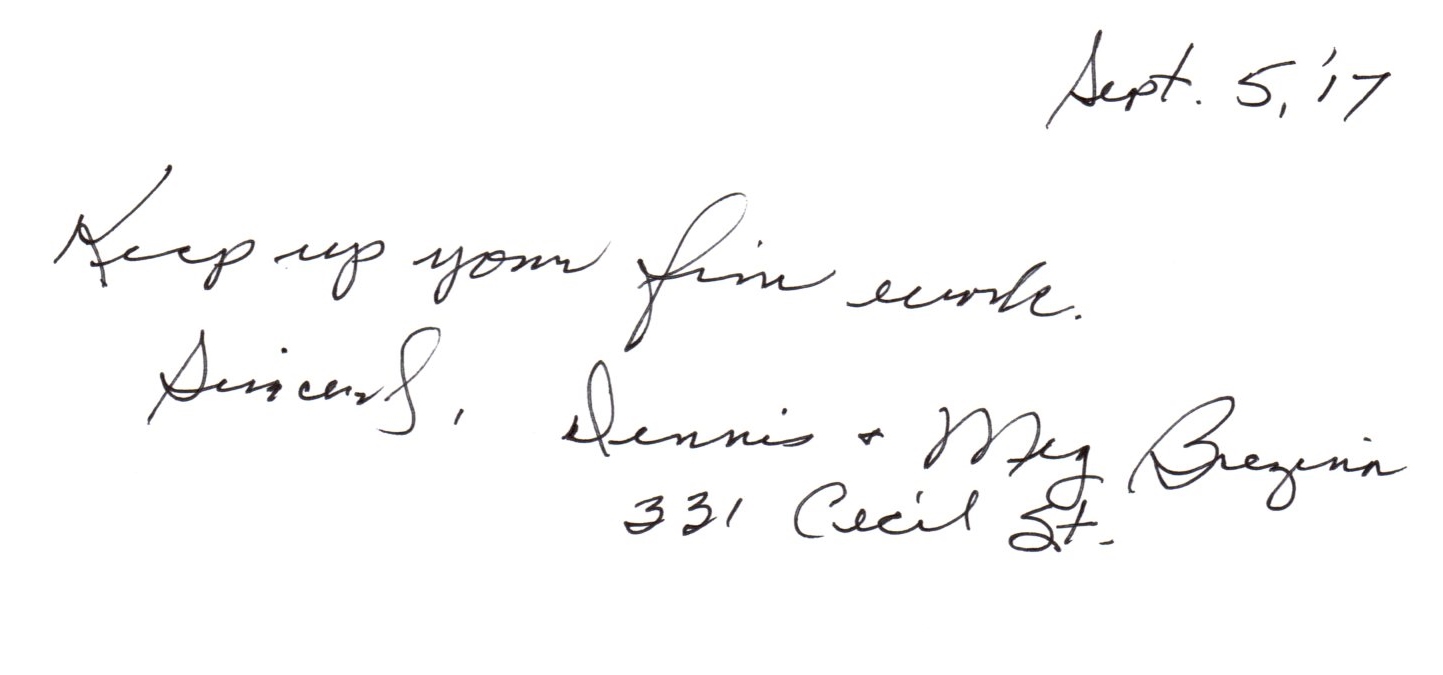 Sept. 5, '17
Keep up your fine work.
Sincerely, Dennis + Meg Brezina
331 Cecil St.